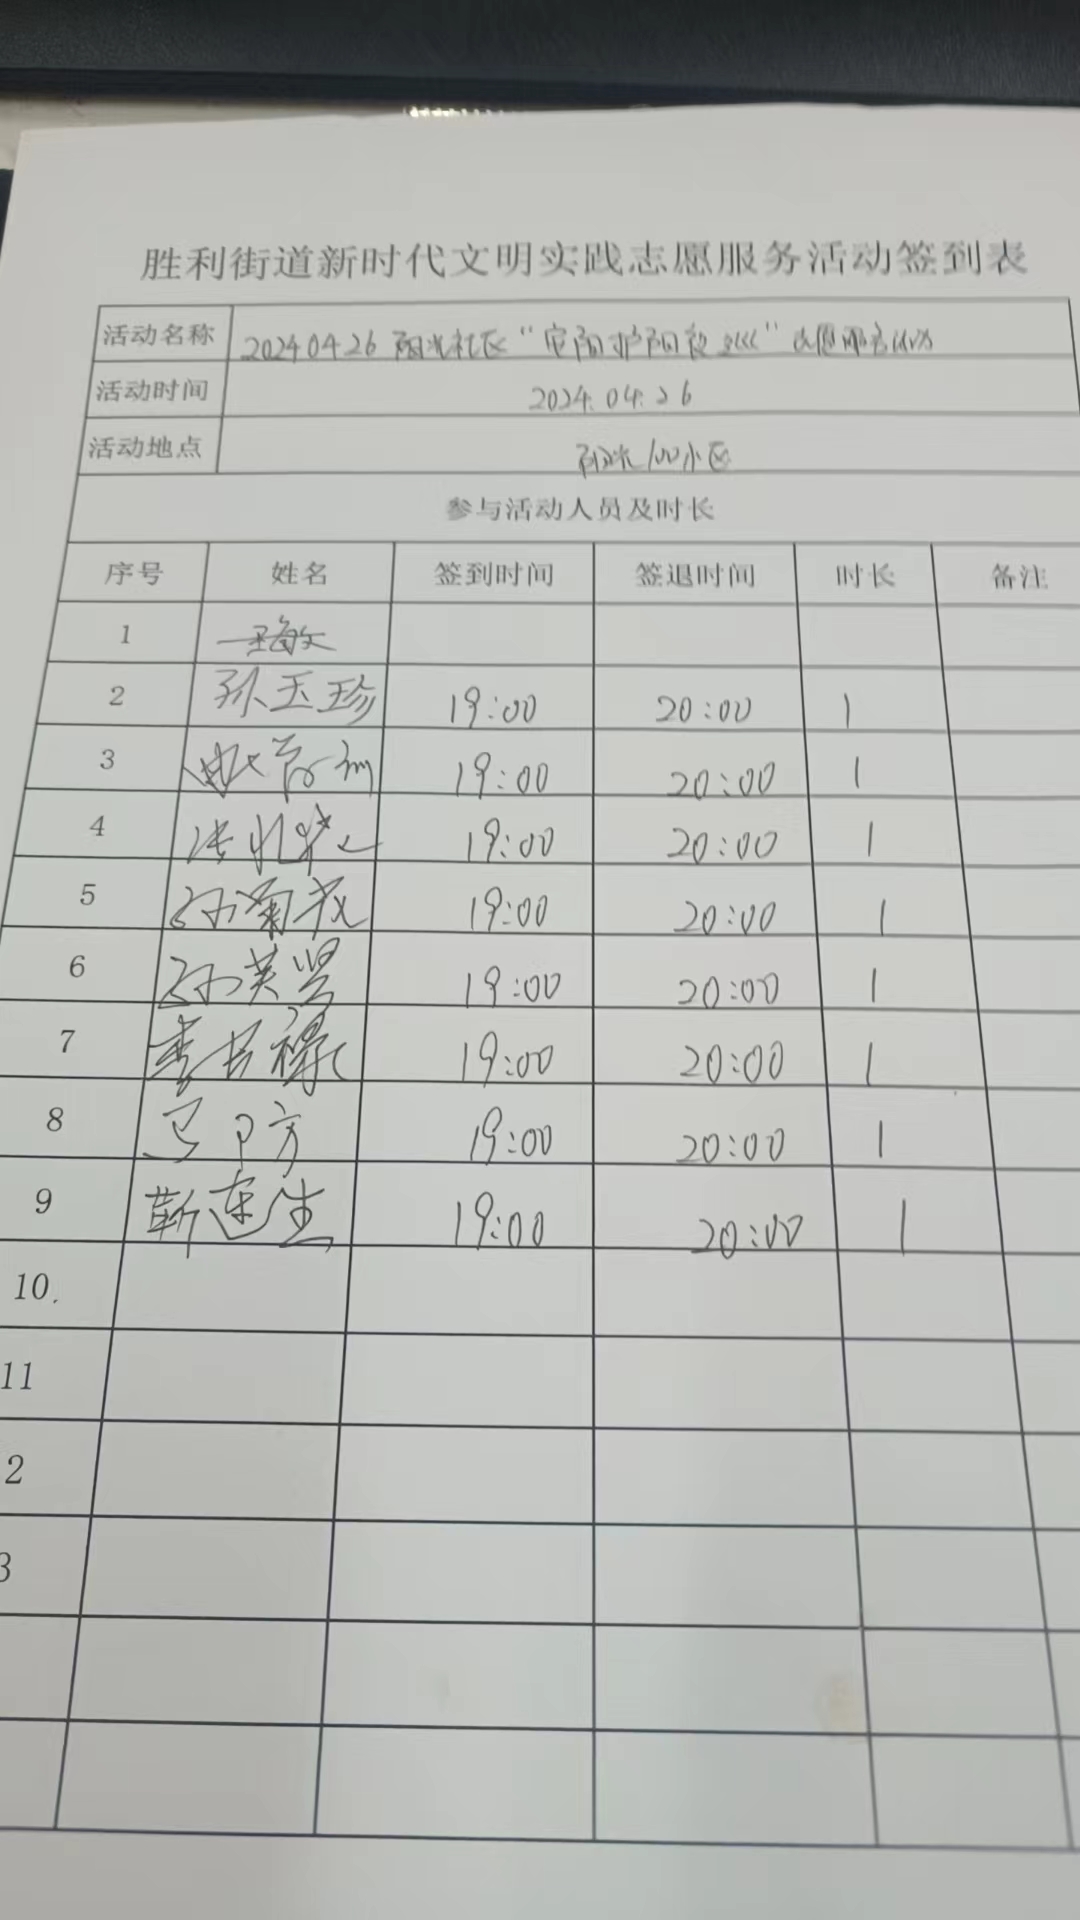 胜利街道新时代文明实践志愿服务活动签到表
活动名称 20240426 阳光社区“ 阳护阳夜巡”志愿服务活动
活动时间 2024.04.26
活动地点 阳光100小区
参与活动人员及时长
序号 姓名 签到时间 签退时间 时长 备注
1 王敏
2 孙玉珍 19:00 20:00 1
3 19:00 20:00 1
4 19:00 20:00 1
5 孙菊 19:00 20:00 1
6 孙英贤 19:00 20:00 1
7 李书禄 19:00 20:00 1
8 19:00 20:00 1
9 靳连生 19:00 20:00 1
10.
11
2
3